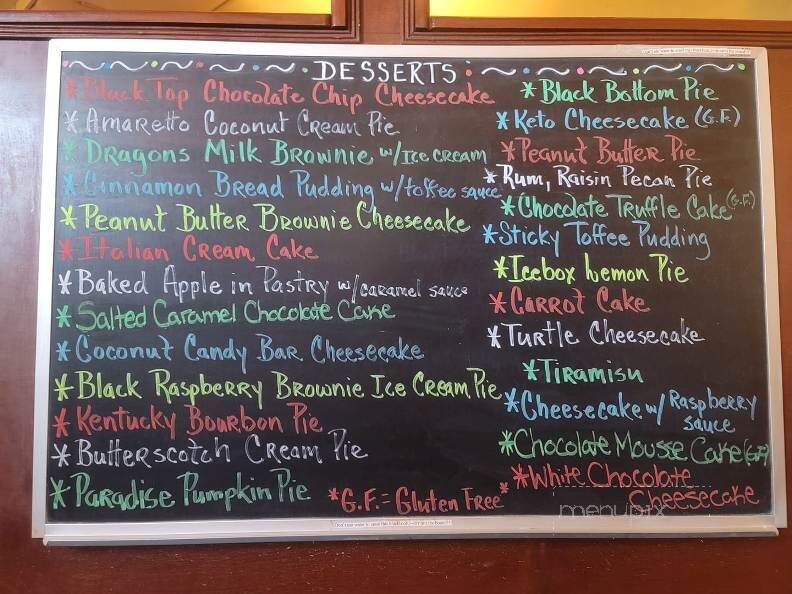 DESSERTS:
*Black Tap Chocolate Chip Cheesecake
*Amaretto Coconut Cream Pie
*Dragons Milk Brownie w/Ice cream
*Cinnamon Bread Pudding w/toffee sauce
*Peanut Butter Brownie Cheesecake
*Italian Cream Cake
*Baked Apple in Pastry w/caramel sauce
*Salted Caramel Chocolate Cake
*Coconut Candy Bar Cheesecake
*Black Raspberry Brownie Ice Cream Pie
*Kentucky Bourbon Pie
*Butterscotch Cream Pie
*Paradise Pumpkin Pie
*G.F.=Gluten Free*
*Black Bottom Pie
*Keto Cheesecake (G.F.)
*Peanut Butter Pie
*Rum, Raisin Pecan Pie
*Chocolate Truffle Cake (G.F.)
*Sticky Toffee Pudding
*Icebox Lemon Pie
*Carrot Cake
*Turtle Cheesecake
*Tiramisu
*Cheesecake w/ Raspberry
sauce
*Chocolate Mousse Cake (GF)
*White Chocolate
Cheesecake
menupix